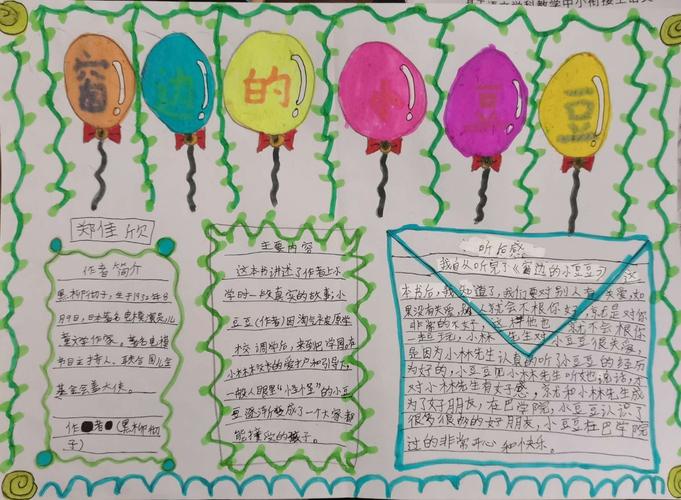 窗边的小豆豆
郑佳欣
作者简介
黑柳彻子,生于1932年8
月9日,日本著名电视演员,儿
童文学作家。著名电视
节目主持人、联合国儿童
基金会亲善大使。
作者(黑柳彻
子)
主要内容
这本书讲述了作者上小
学时一段真实的故事:小
豆豆(作者)因淘气被原学
校退学后,来到巴学园。在
小林校长的爱护和引导下,
一般人眼里“怪怪”的小豆
豆逐渐变成了一个大家都
能接受的孩子。
听后感
我自从听完了《窗边的小豆豆》这
本书后,我知道了,我们要对别人有关爱,如
果没有关爱,别人就会不跟你好,就是对你
非常的不好,
一起玩,小林先生对小豆豆很关爱。
是因为小林先生认真的听小豆豆的经历
为好的,小豆豆见小林先生听她说话,才
对小林先生有好感,还和小林先生成
为了好朋友,在巴学院,小豆豆认识了
很多很多的好朋友,小豆豆在巴学院
过的非常开心和快乐。